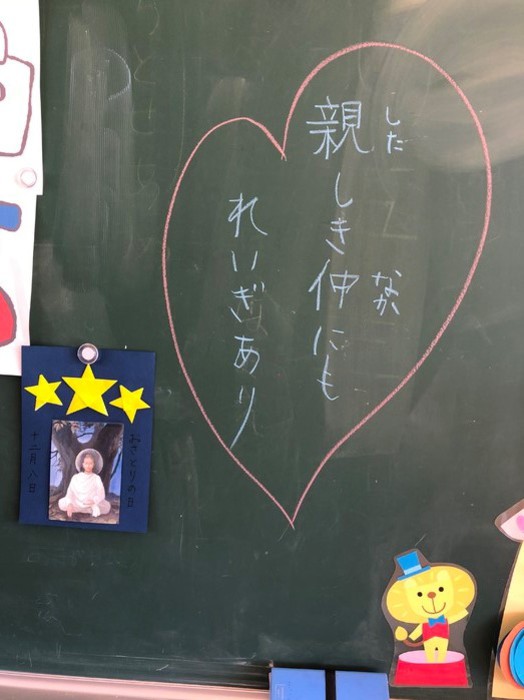 した
親しき仲にも
なか
れいぎあり
おさとりの日
十二月八日